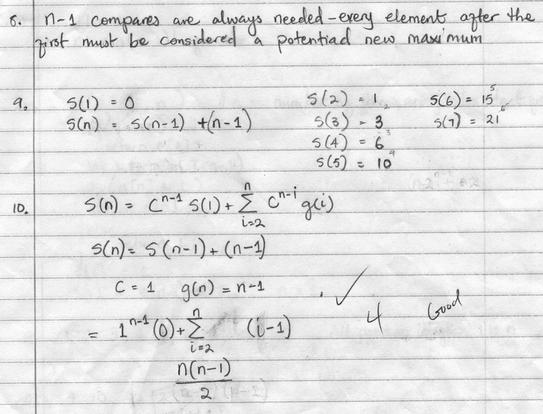 8. n-1 compares are always needed - every element after the
first must be considered a potential new maximum
9. S(1) = 0 S(2) = 1 S(6) = 15
S(n) = S(n-1) + (n-1) S(3) = 3 S(7) = 21
S(4) = 6
S(5) = 10
10. S(n) = C^{n-1} S(1) + \sum_{i=2}^{n} C^{n-i} g(i)
S(n) = S(n-1) + (n-1)
C = 1 g(n) = n-1 ✓
= 1^{n-1} (0) + \sum_{i=2}^{n} (i-1) 4 Good
n(n-1)
2